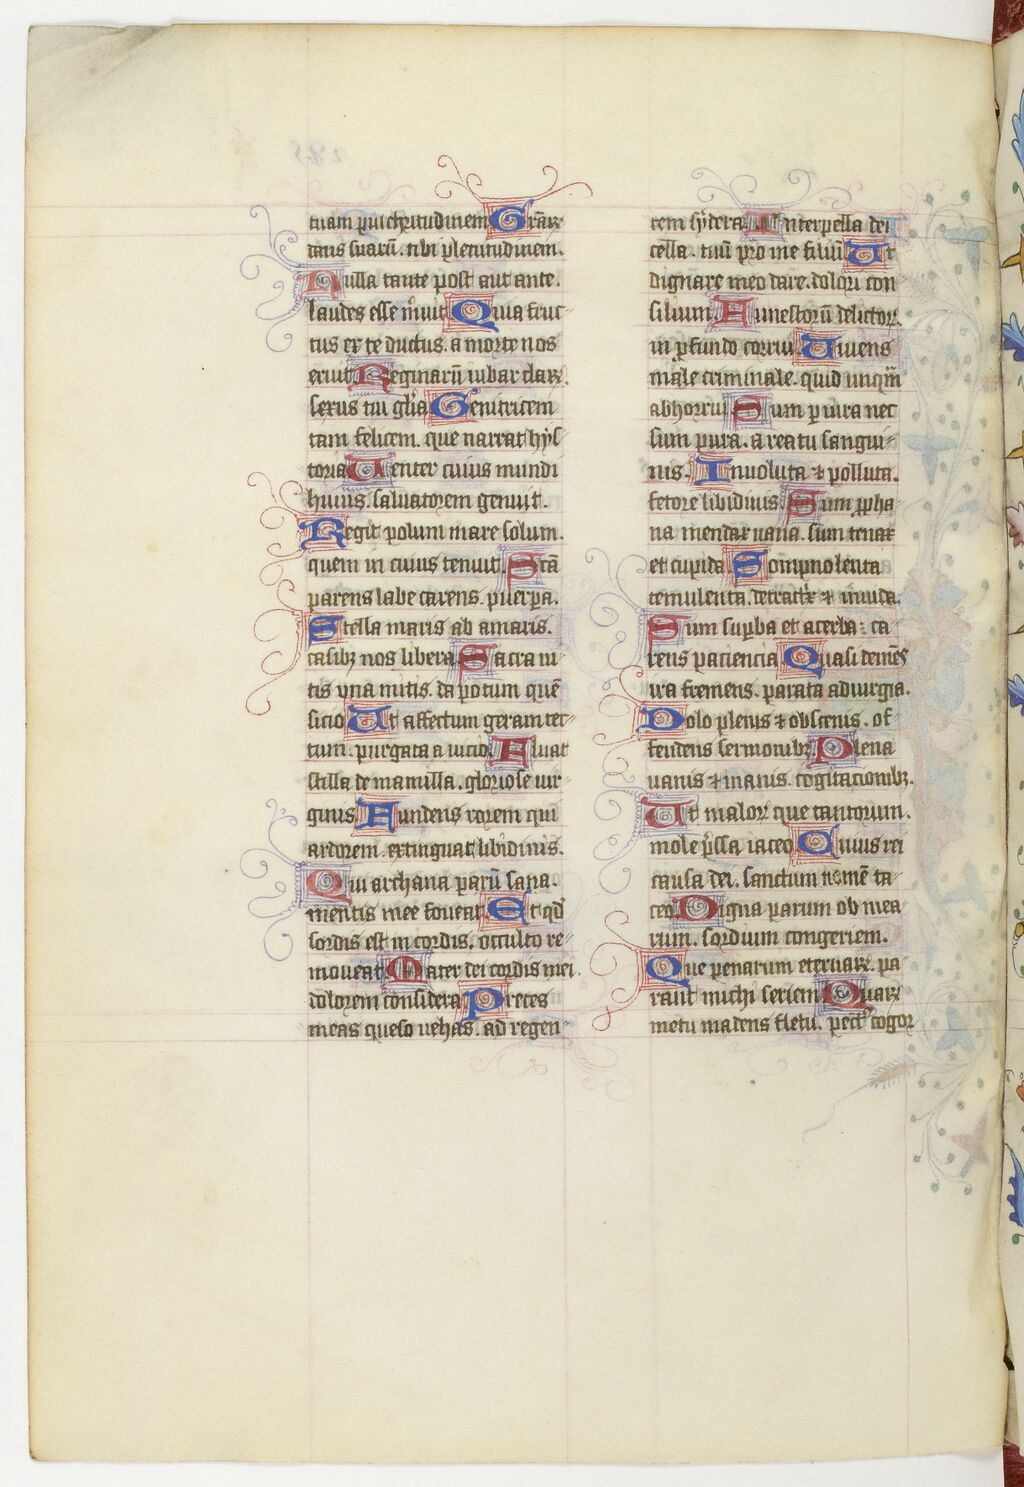 tuam pulchritudinem Grar̄
tatis suarū. tibi plenitudinem.
Nulla tante post aut ante.
laudes esse m̄uit Quia fruc
tus ex te ductus. a morte nos
eruit Reginarū iubar clar
sexus tui gl̄ia Genitricem
tam felicem. que narrat hys
toria Uenter cuius mundi
huius. saluatorem genuit.
Regit polum mare solum.
quem in cuius tenuit. Sc̄a
parens labe carens. puerpa.
Stella maris ab amaris.
casibꝫ nos libera Sacra ui
tis vna mitis. da potum quē
sicio Ut affectum geram cer
tum. purgata a vicio. Fluat
stilla de mamilla. gloriose uir
ginis Fundens rorem qui
ardorem. extinguat libidinis.
Qui archana parū sana.
mentis mee foueat. Et qd̄
sordis est in cordis. occulto re
moueat Mater dei cordis mei
dolorem considera Preces
meas queso uehas. ad regen
tem sydera Interpella dei
cella. tuū pro me filiū Ut
dignare meo dare. dolori con
silium. Funestorū delictoꝝ.
in ꝓfundo corrui Uiuens
male criminale. quid unqm̄
abhorrui Sum ꝑiura nec
sum pura. a reatu sangui
nis. Inuoluta & polluta.
fetore libidinis Sum ꝓpha
na mendax uana. sum tenax
et cupida Sompnolenta
temulenta. detractrx & inuida.
Sum suꝑba et acerba. ca
rens paciencia Quasi demēs
ira fremens. parata ad iurgia.
Dolo plenis & obscenis. of
fendens sermonibꝫ Plena
uanis & inanis. cogitacionibꝫ.
Ut maloꝝ que tantorum.
mole p̄ssa iaceo Cuius rei
causa dei. sanctum nomē ta
ceo Digna parum ob mea
rum. sordium congeriem.
Que penarum eternaꝝ. pa
rant michi seriem Quare
metu madens fletu. pect̄ cogor